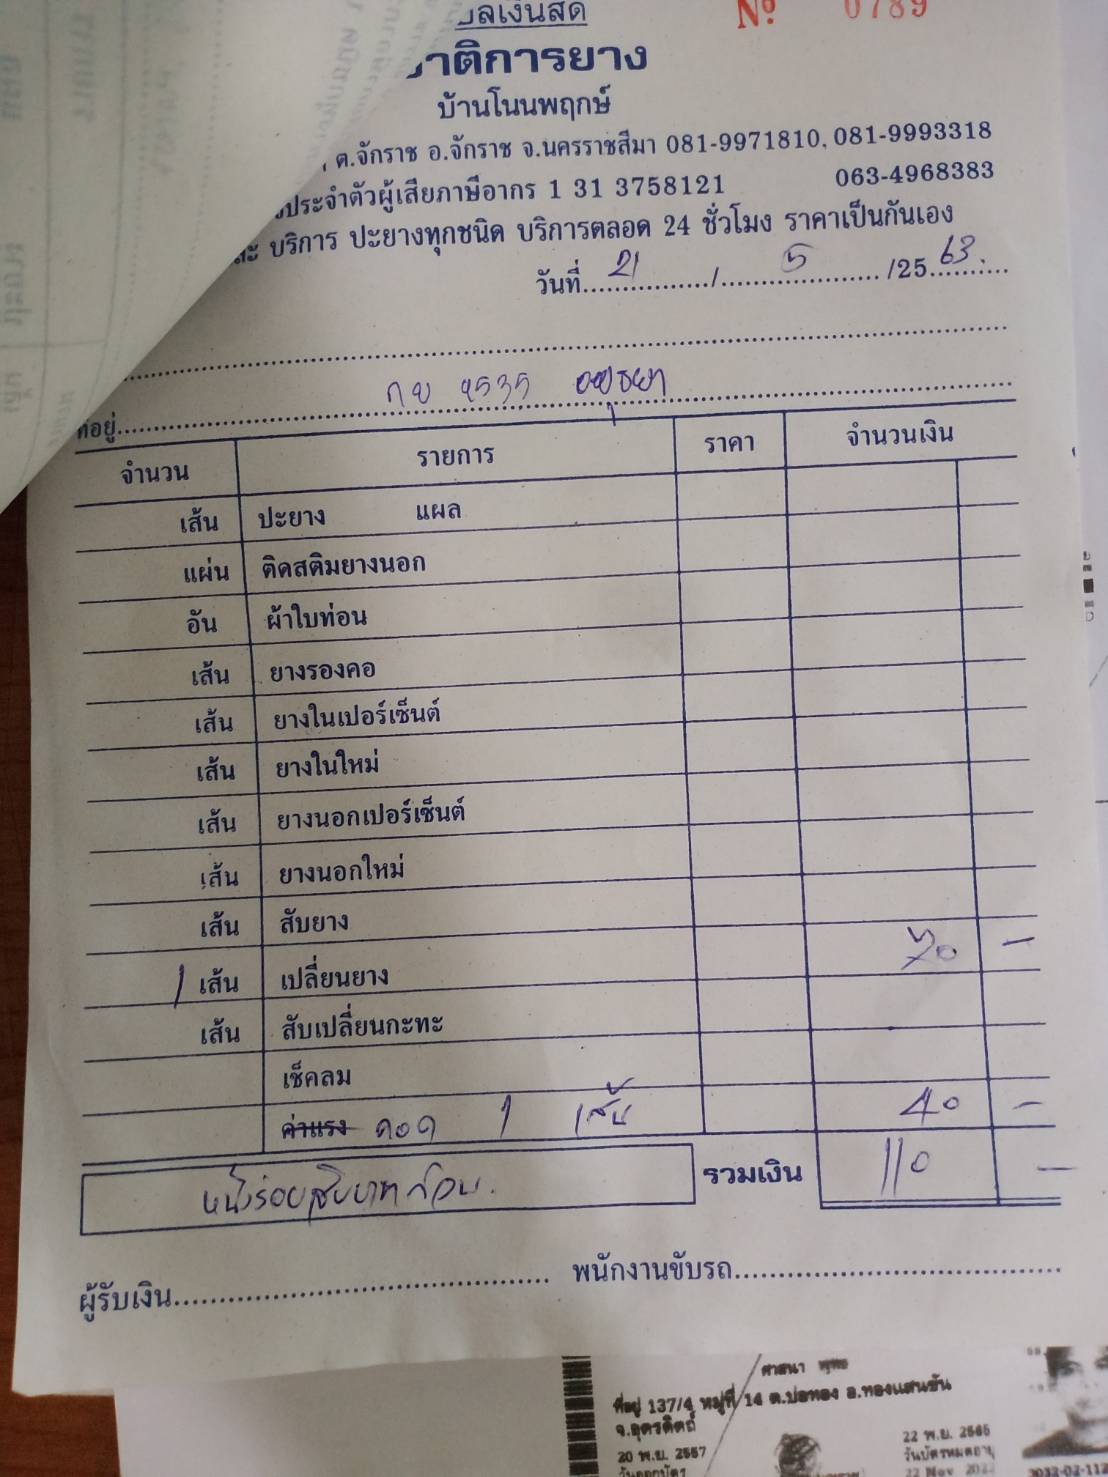 บิลเงินสด
Nº 0789
าติการยาง
บ้านโนนพฤกษ์
ต.จักราช อ.จักราช จ.นครราชสีมา 081-9971810, 081-9993318
ประจำตัวผู้เสียภาษีอากร 1 31 3758121 063-4968383
บริการ ปะยางทุกชนิด บริการตลอด 24 ชั่วโมง ราคาเป็นกันเอง
วันที่ 21 / 5 /25 63.
ที่อยู่ กข 4535 อยุธยา
จำนวน รายการ ราคา จำนวนเงิน
เส้น ปะยาง แผล
แผ่น ติดสติมยางนอก
อัน ผ้าใบท่อน
เส้น ยางรองคอ
เส้น ยางในเปอร์เซ็นต์
เส้น ยางในใหม่
เส้น ยางนอกเปอร์เซ็นต์
เส้น ยางนอกใหม่
เส้น สับยาง
1 เส้น เปลี่ยนยาง 70 -
เส้น สับเปลี่ยนกะทะ
เช็คลม
ค่าแรง ถอด 1 เส้น 40 -
หนึ่งร้อยสิบบาทถ้วน. รวมเงิน 110 -
ผู้รับเงิน พนักงานขับรถ
ศาสนา พุทธ
ที่อยู่ 137/4 หมู่ที่ 14 ต.บ่อทอง อ.ทองแสนขัน
จ.อุตรดิตถ์
20 พ.ย. 2557 22 พ.ย. 2565
วันออกบัตร วันบัตรหมดอายุ
22 Nov 2022